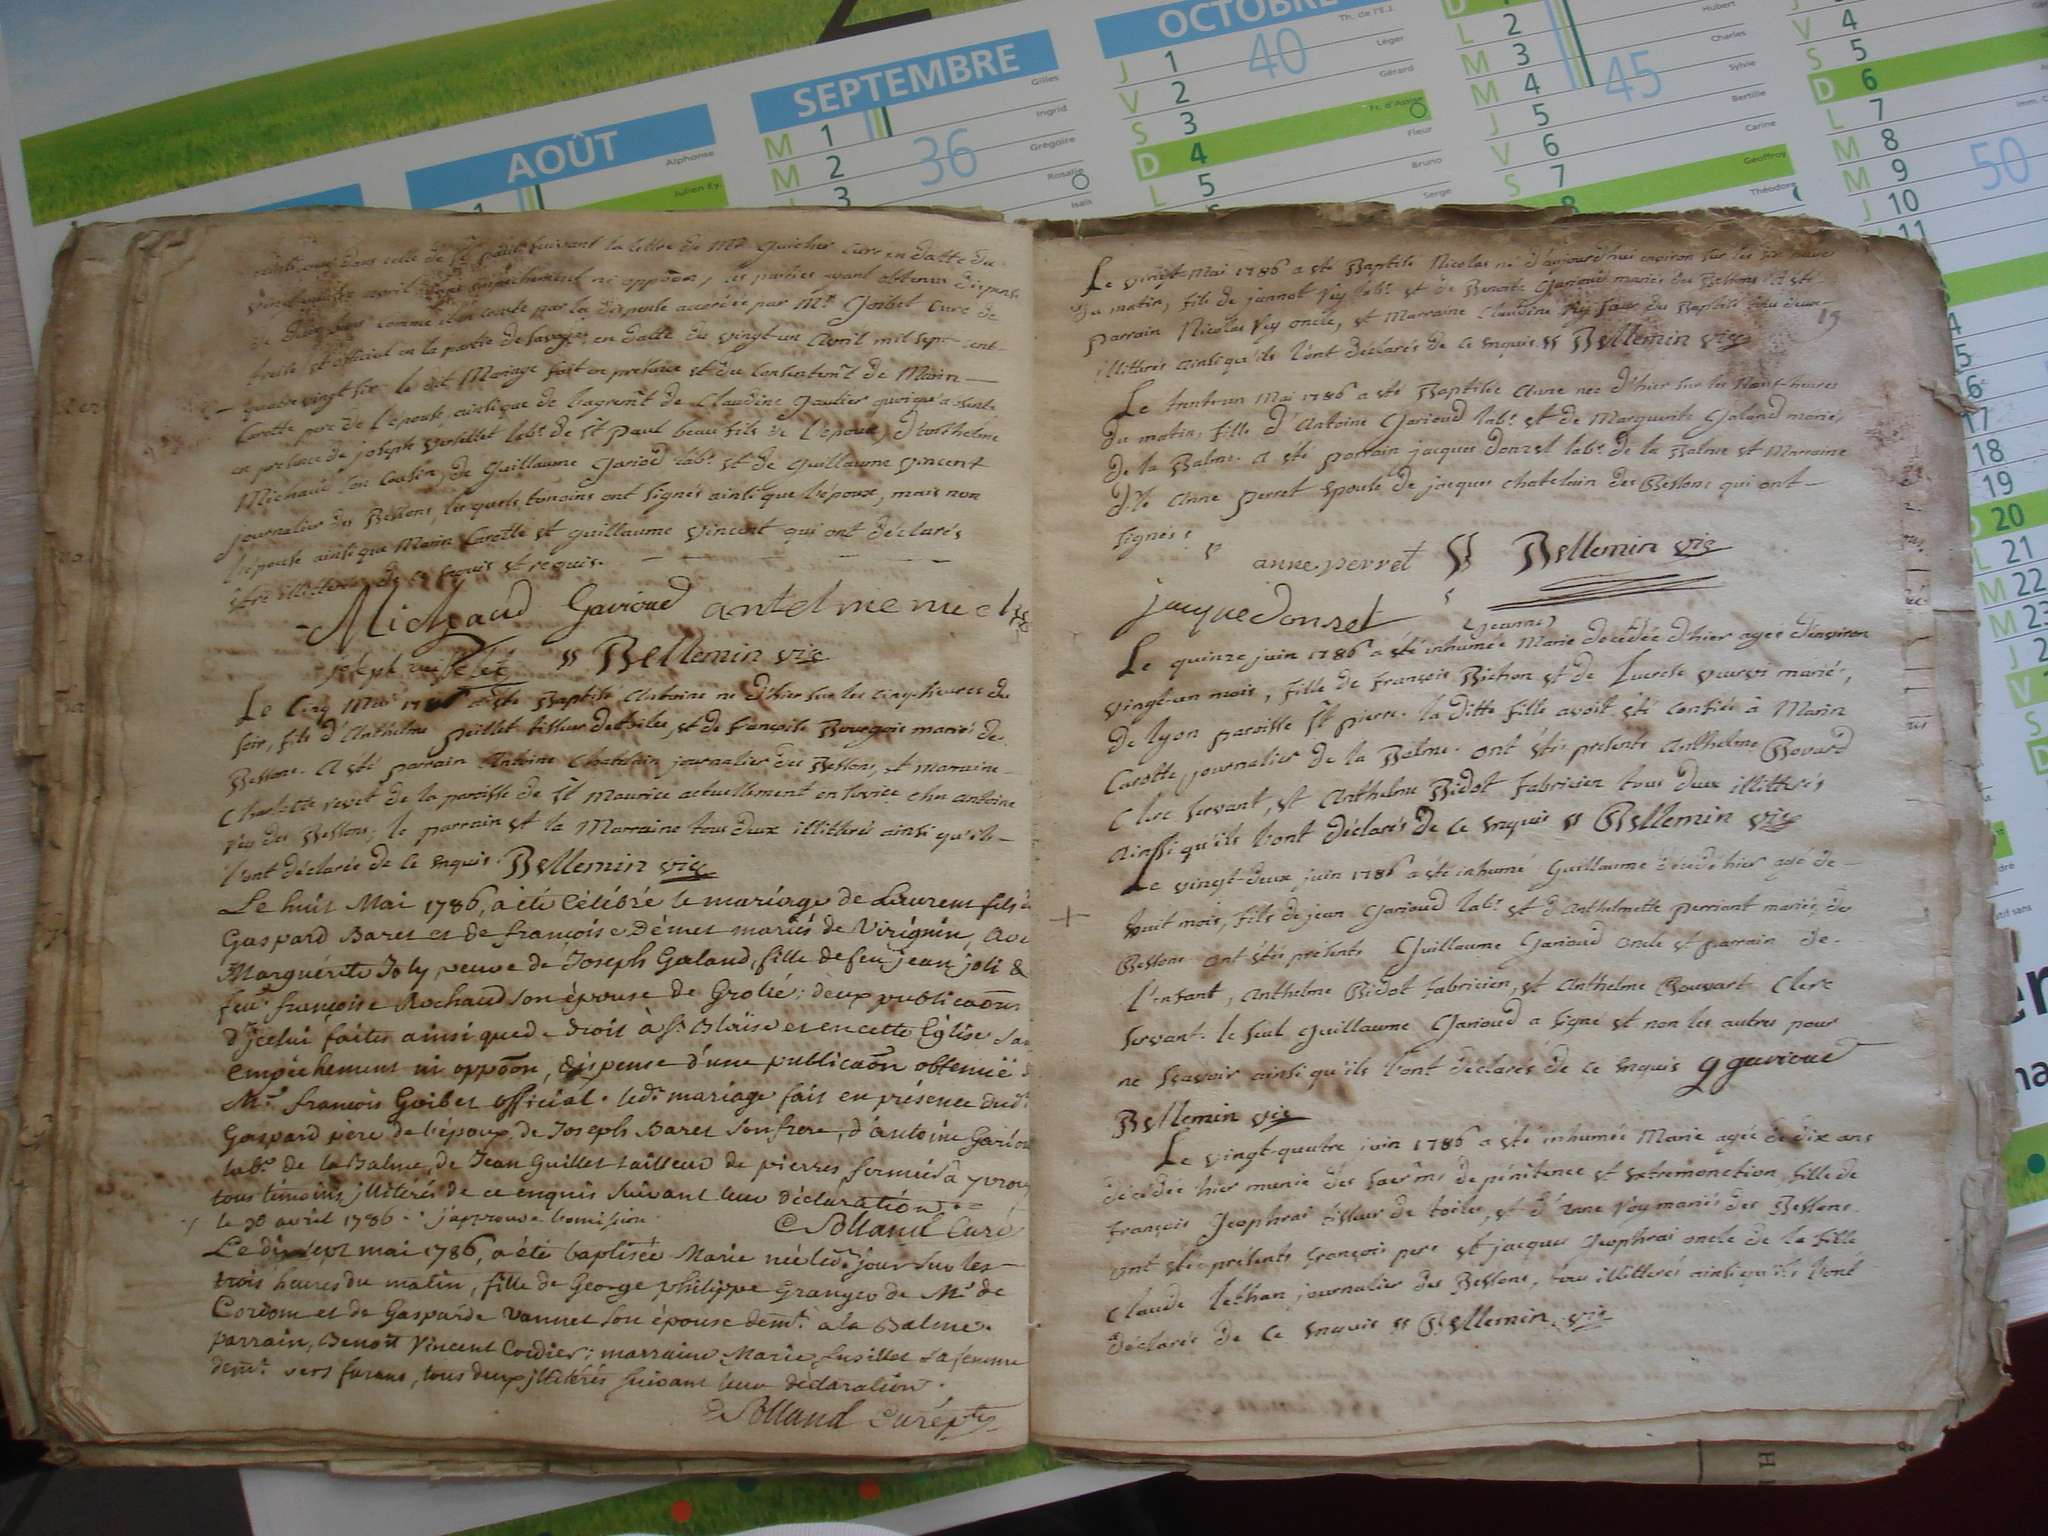 AOÛT
Alphonse
Julien Ey.
SEPTEMBRE
M 1 Gilles
M 2 36 Ingrid
3 Grégoire
Rosalie
OCTOBRE
J 1 40 Th. de l'E.J.
V 2 Léger
S 3 Gérard
D 4 Fr. d'Assise
L 5 Fleur
Bruno
Serge
L 2 Hubert
M 3 Charles
M 4 45 Sylvie
J 5 Bertille
V 6 Carine
S 7 Geoffroy
8 Théodore
V 4
S 5
D 6
L 7
M 8
M 9 50
J 10
11
17
18
19
20
L 21
M 22
M 23
dans celle de St suivant la lettre de Mr Guicher curé en datte du
vingt quatre avril sans empêchement ni oppoõn, les parties ayant obtenu dispense
de deux bans comme il en conste par la dispense accordée par Mr Goibet curé de
et official en la partie de Savoye en datte du vingt-un avril mil sept-cent-
quatre vingt six. le dit Mariage fait en présence et du consentemt de Marin
Carotte pere de l'épouse, ainsi que de l'agremt de Claudine Gautier
en présence de joseph vuillet labr de St Paul beau fils de l'époux, d'anthelme
Michaud son cousin, de Guillaume Gariod labr et de Guillaume vincent
journalier des Bessons, lesquels temoins ont signés ainsi que l'époux, mais non
l'épouse ainsi que Marin Carotte et guillaume vincent qui ont déclarés
être illitterés de ce enquis et requis.
Michaud Garioud antelme
joseph Bellemin vic
Le cinq Mai 1786 a été Baptisé Antoine né d'hier sur les cinq heures du
soir, fils d'Anthelme peillet tisseur de toiles, et de françoise Bourgeois mariés des
Bessons. A été parrain Antoine Chatelain journalier des Bessons, et marraine
Charlotte revet de la paroisse de St Maurice actuellement en service chez antoine
vey des Bessons; le parrain et la Marraine tous deux illitterés ainsi qu'ils
l'ont déclarés de ce enquis. Bellemin vic
Le huit Mai 1786, a été célébré le mariage de Laurent fils de
Gaspard Baret et de françoise Démet mariés de Virignin, avec
Marguérite Joly, veuve de Joseph Galand, fille de feu jean joli &
feue françoise Rochaud son épouse de Grolée; deux publicaõns
d'jcelui faites ainsi que de droit à St Blaise et en cette Eglise sans
empêchement ni oppoõn, dispense d'une publicaõn obtenuë de
Mr. françois Goibet official. led. mariage fait en présence dud.
Gaspard père de l'époux, de Joseph Baret son frere, d'antoine Gariou
labr. de la Balme, de Jean Guillet tailleur de pierres, fermier à yvrou
tous témoins jllitérés de ce enquis suivant leur déclaration.
le 30 avril 1786. j'approuve l'omission. Solland Curé
Le dix sept mai 1786, a été baptisée Marie née led. jour sur les
trois heures du matin, fille de George philippe Granger de Mr de
Cordom et de Gasparde Vannet son épouse demt. à la Balme.
parrain, Benoît Vincent Cordier; marraine Marie fusillet sa femme
demt. vers furans, tous deux jllitérés suivant leur déclaration.
Solland Curé
19
Le vingt Mai 1786 a été Baptisé Nicolas né d'aujourd'hui environ sur les
du matin, fils de jannot Vey labr et de Benoite Garioud mariés des Bessons. A été
parrain Nicolas Vey oncle, et Marraine Claudine Vey sœur du Baptisé tous deux
illitterés ainsi qu'ils l'ont déclarés de ce enquis Bellemin vic
Le trente-un Mai 1786 a été Baptisée Anne née d'hier sur les neuf-heures
du matin, fille d'Antoine Garioud labr et de Marguerite Galand mariés
de la Balme. a été parrain jacques donzel labr de la Balme et Marraine
dlle Anne perret épouse de jacques chatelain des Bessons qui ont
signés
anne perret Bellemin vic
jacque donzel
(jeanne)
Le quinze juin 1786 a été inhumée Marie decedée d'hier agée d'environ
vingt-un mois, fille de françois Bichon et de Lucrece mariés,
de lyon paroisse St pierre. la ditte fille avoit été confiée à Marin
Carotte journalier de la Balme. ont étés présents Anthelme Bovard
Clerc servant, et Anthelme Bidot fabricien tous deux illitterés
ainssi qu'ils l'ont déclarés de ce enquis Bellemin vic
Le vingt-deux juin 1786 a été inhumé Guillaume décedé hier agé de
huit mois, fils de jean Garioud labr et d'Anthelmette perriant mariés des
Bessons ont étés présents Guillaume Garioud oncle et parrain de
l'enfant, Anthelme Bidot fabricien, et Anthelme Bouvart Clerc
servant. le seul Guillaume Garioud a signé et non les autres pour
ne sçavoir ainsi qu'ils l'ont déclarés de ce enquis g garioud
Bellemin vic
Le vingt-quatre juin 1786 a été inhumée Marie agée de dix ans
décedée hier munie des sacrems de pénitence et extremonction, fille de
françois Jeophrai tisseur de toiles, et d'Anne Vey mariés des Bessons.
ont étés présents françois pere et jacques Jeophrai oncle de la fille
Claude Lethan journalier des Bessons, tous illitterés ainsi qu'ils l'ont
déclarés de ce enquis Bellemin vic